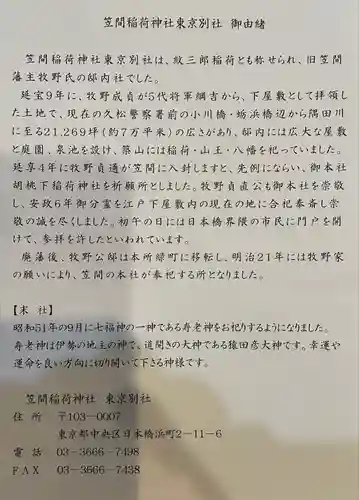 笠間稲荷神社東京別社 御由緒
笠間稲荷神社東京別社は、紋三郎稲荷とも称せられ、旧笠間
藩主牧野氏の邸内社でした。
延宝9年に、牧野成貞が5代将軍綱吉から、下屋敷として拝領し
た土地で、現在の久松警察署前の小川橋・蛎浜橋辺から隅田川
に至る21,269坪（約7万平米）の広さがあり、邸内には広大な屋敷
と庭園、泉池を設け、築山には稲荷・山王・八幡を祀っていました。
延享4年に牧野貞通が笠間に入封しますと、先例にならい、御本社
胡桃下稲荷神社を祈願所としました。牧野貞直公も御本社を崇敬
し、安政6年御分霊を江戸下屋敷内の現在の地に合祀奉斎し崇
敬の誠を尽くしました。初午の日には日本橋界隈の市民に門戸を開
けて、参拝を許したといわれています。
廃藩後、牧野公邸は本所緑町に移転し、明治21年には牧野家
の願いにより、笠間の本社が奉祀する所となりました。
【末 社】
昭和51年の9月に七福神の一神である寿老神をお祀りするようになりました。
寿老神は伊勢の地主の神で。道開きの大神である猿田彦大神です。幸運や
運命を良い方向に切り開いて下さる神様です。
笠間稲荷神社 東京別社
住 所 〒103-0007
東京都中央区日本橋浜町2-11-6
電 話 03-3666-7498
FAX 03-3666-7438